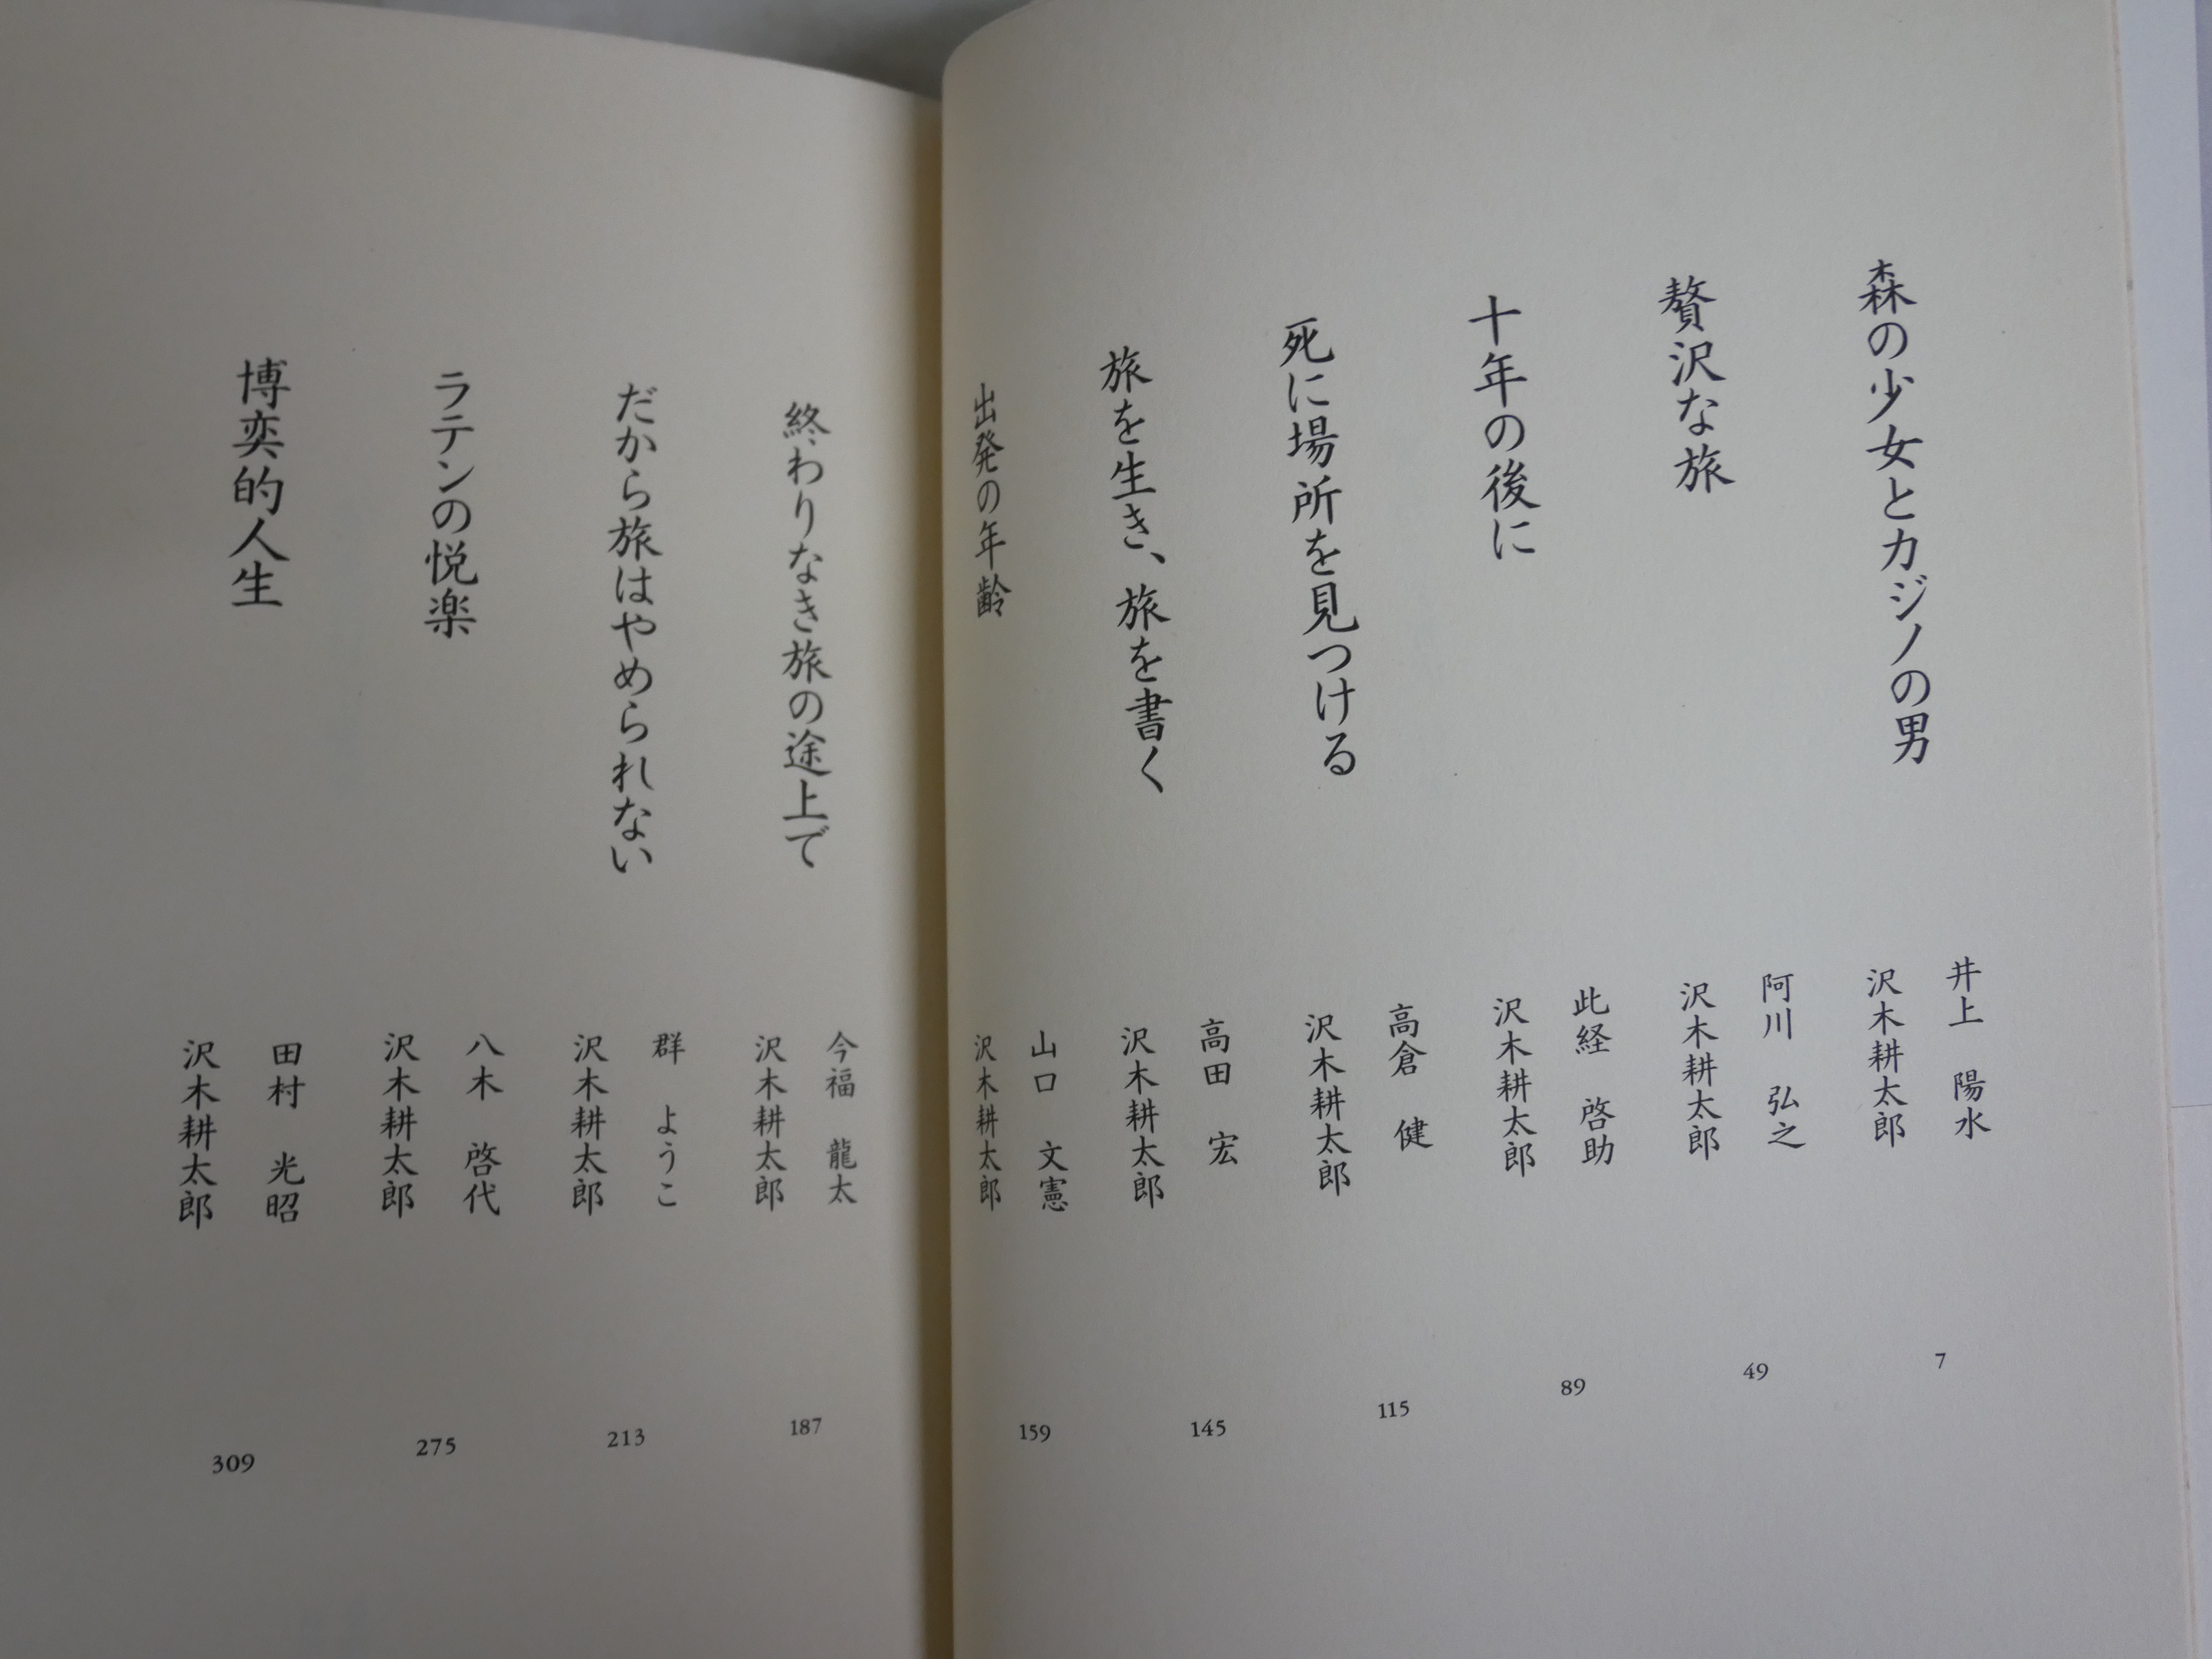 森の少女とカジノの男
井上 陽水
沢木耕太郎
7
贅沢な旅
阿川 弘之
沢木耕太郎
49
十年の後に
此経 啓助
沢木耕太郎
89
死に場所を見つける
高倉 健
沢木耕太郎
115
旅を生き、旅を書く
高田 宏
沢木耕太郎
145
出発の年齢
山口 文憲
沢木耕太郎
159
終わりなき旅の途上で
今福 龍太
沢木耕太郎
187
だから旅はやめられない
群 ようこ
沢木耕太郎
213
ラテンの悦楽
八木 啓代
沢木耕太郎
275
博奕的人生
田村 光昭
沢木耕太郎
309